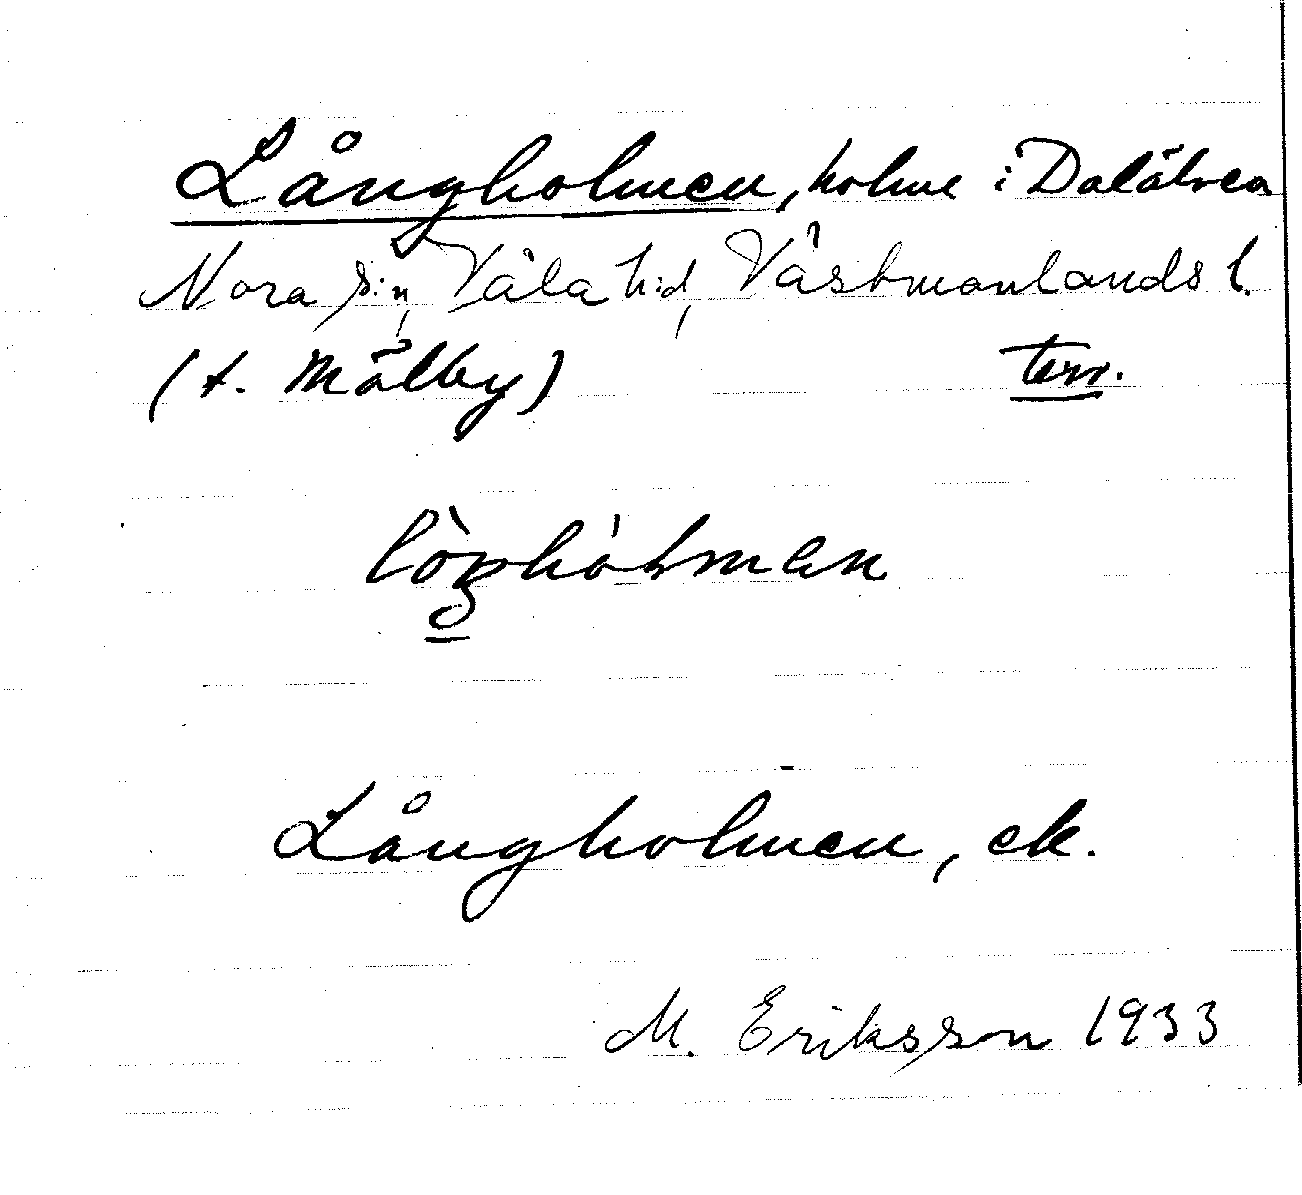 Långholmen, holme i Dalälven
Nora s:n, Våla hd, Västmanlands l.
(t. Mälby) terr.
Långholmen, ek.
M. Eriksson 1933